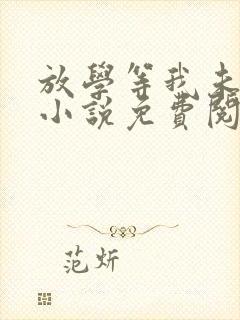 放學等我未
小說免費閱
范炘